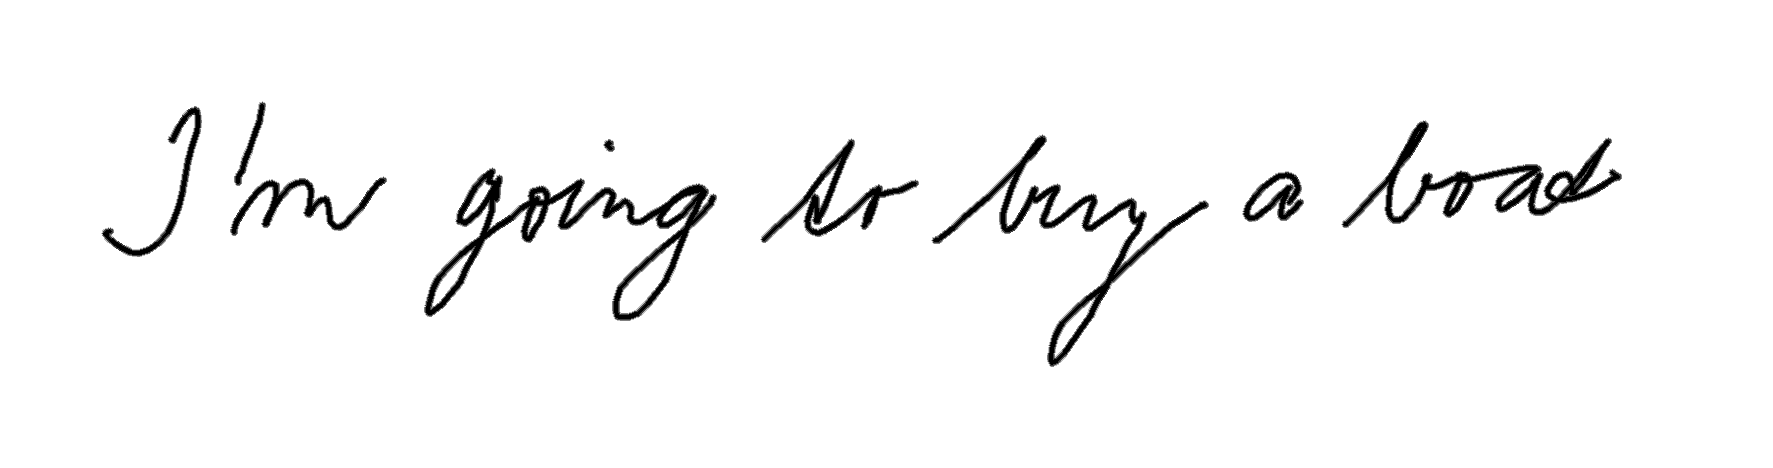 I'm going to buy a boat